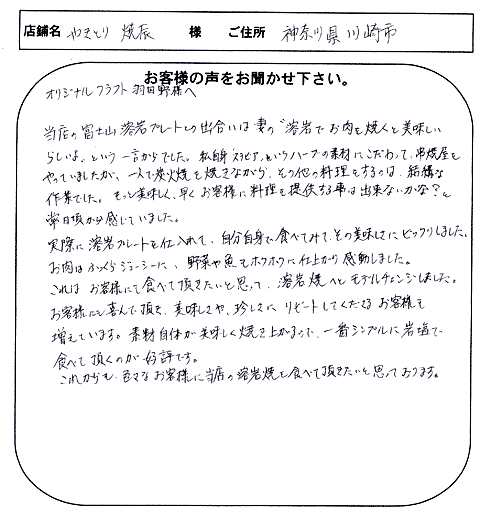 店舗名 やきとり 焼辰 様 ご住所 神奈川県川崎市
お客様の声をお聞かせ下さい。
オリジナルクラフト 羽田野様へ
当店の富士山溶岩プレートとの出合いは妻の〝溶岩でお肉を焼くと美味しい
らしいよ〟という一言からでした。私自身、というハーブの素材にこだわって、串焼屋を
やっていましたが、一人で炭火焼を焼きながら、その他の料理をするのは、結構な
作業でした。もっと美味しく、早くお客様に料理を提供する事は出来ないかな?と
常日頃から感じていました。
実際に溶岩プレートを仕入れて、自分自身で食べてみて、その美味しさにビックリしました。
お肉はふっくらジューシーに、野菜や魚もホクホクに仕上がり感動しました。
これは お客様にも食べて頂きたいと思って、溶岩焼へとモデルチェンジしました。
お客様にも喜んで頂き、美味しさや、珍しさに リピートしてくださる お客様も
増えています。素材自体が美味しく焼き上がるので、一番シンプルに岩塩で
食べて頂くのが 好評です。
これからも、色々なお客様に当店の溶岩焼を食べて頂きたいと思っております。